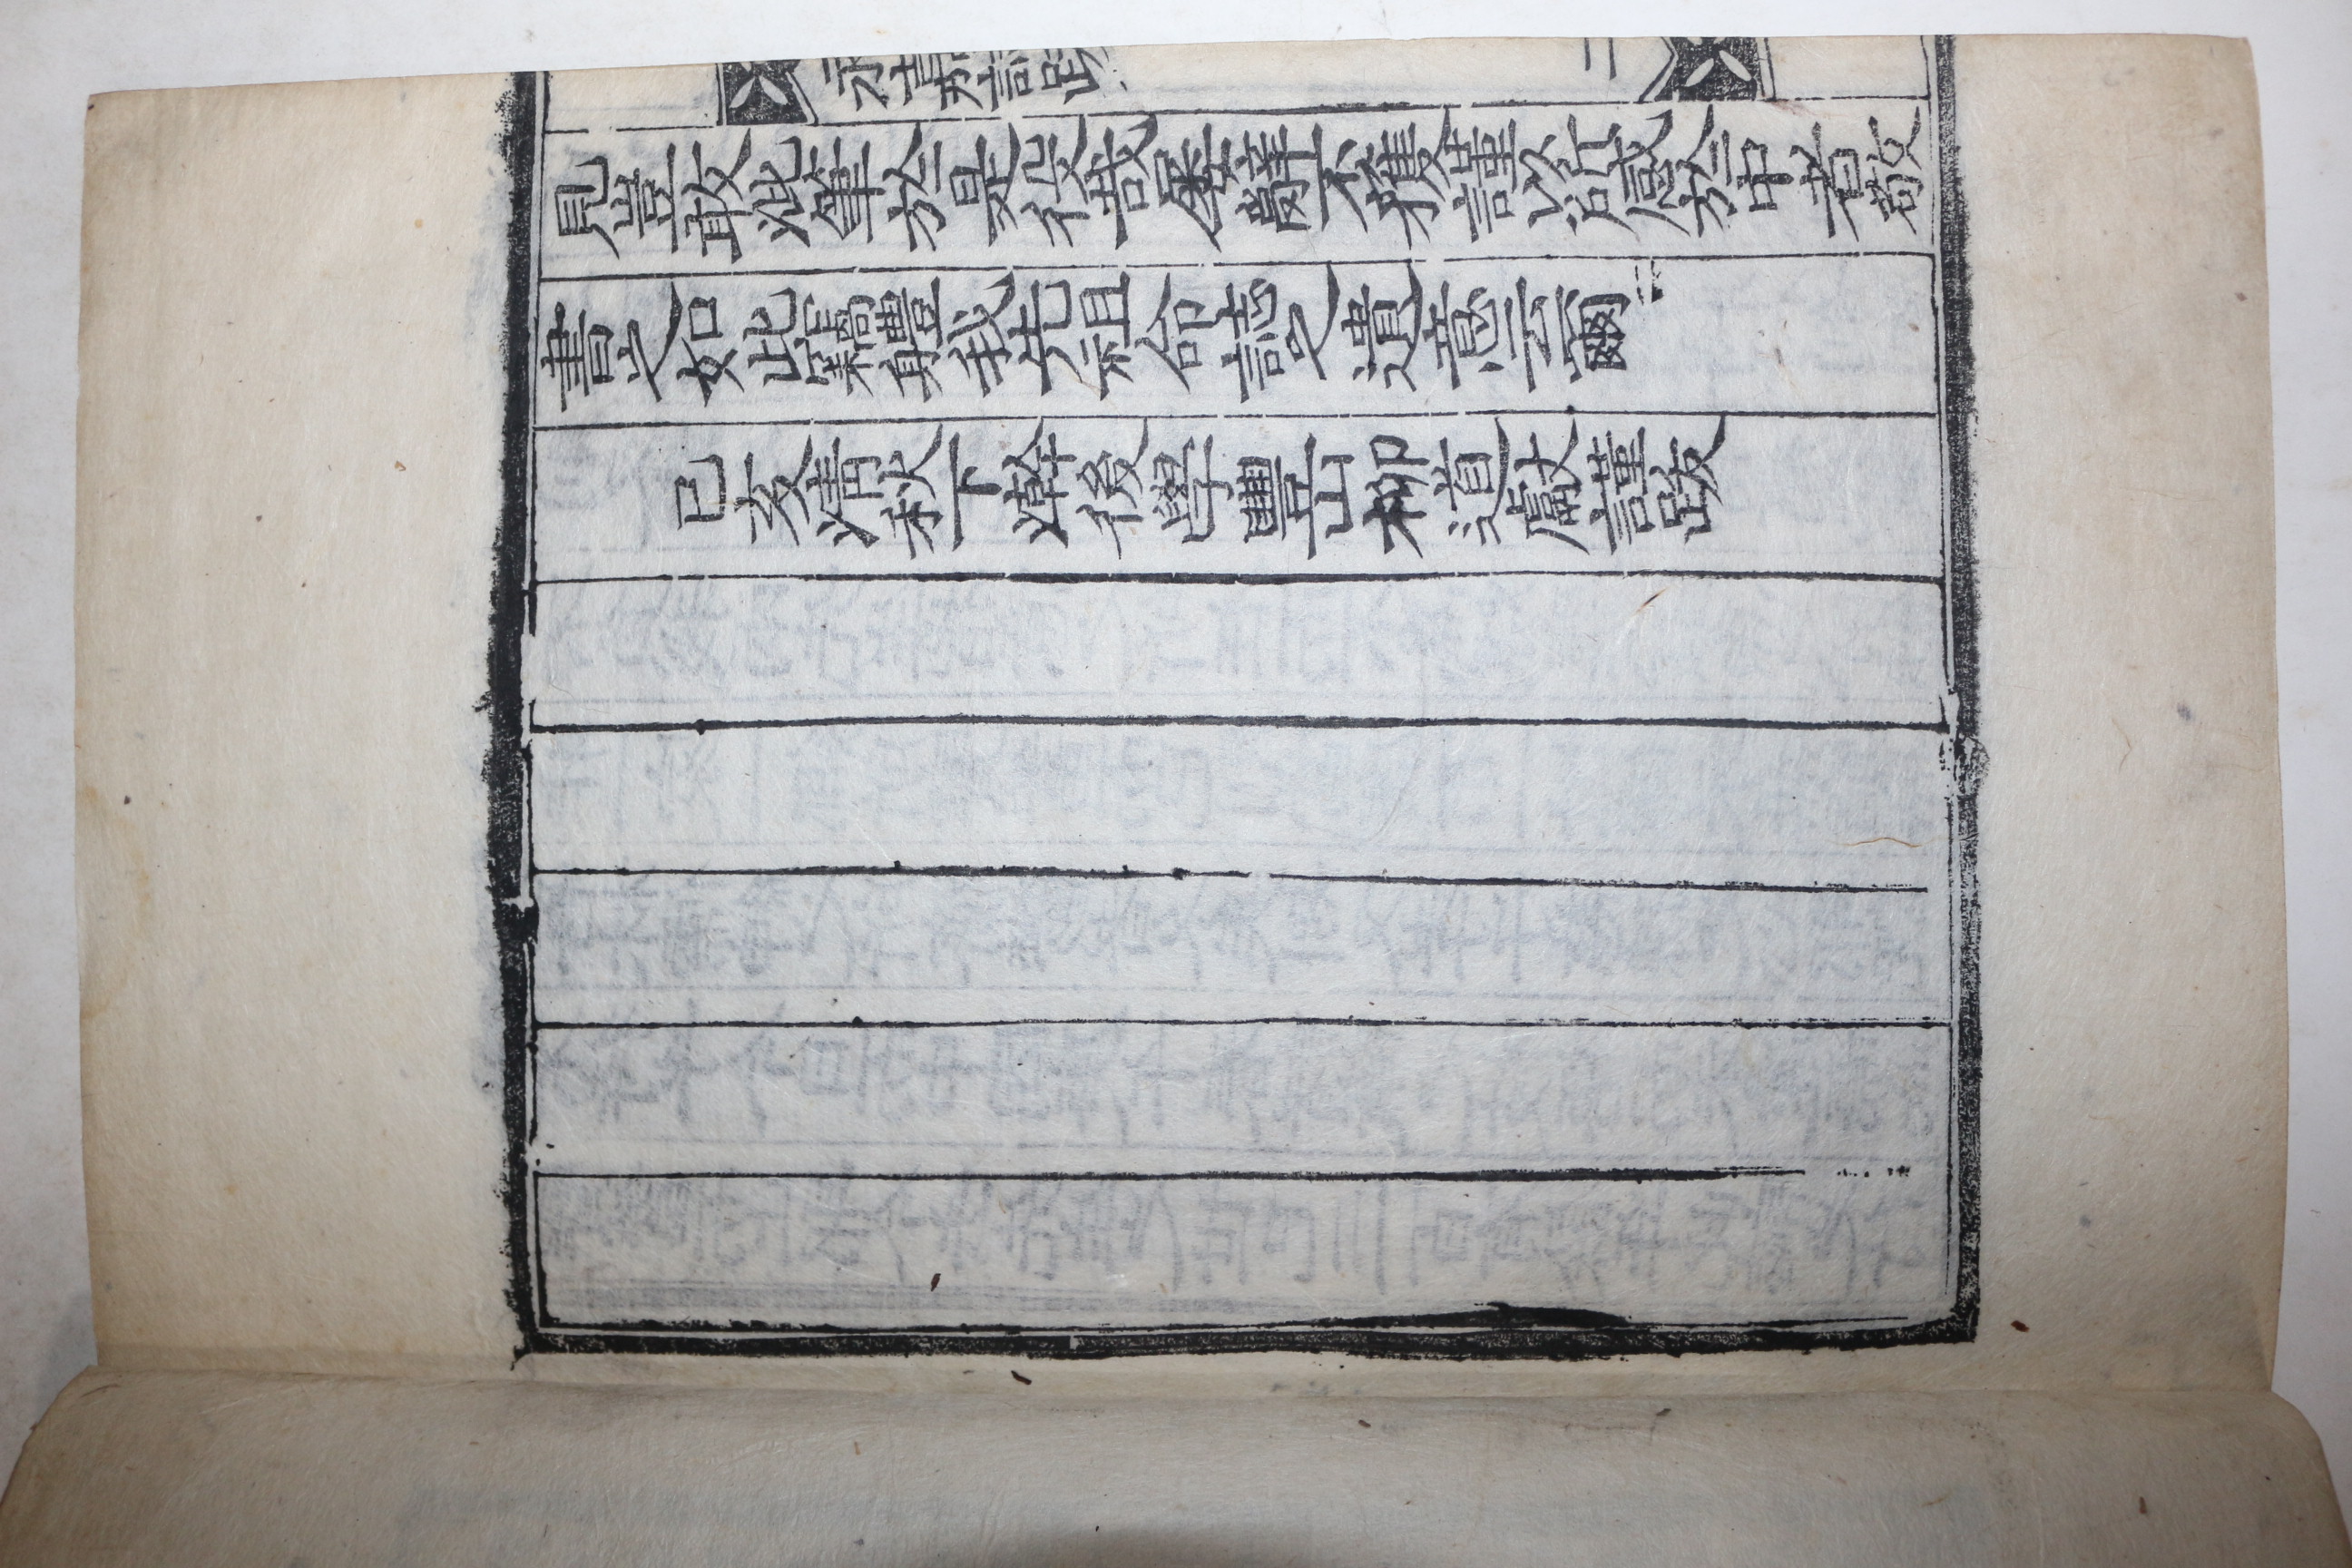 永嘉誌跋
二
見豈敢泚筆於是役哉屡辭不獲謹以所感於中者敬
書之如此竊軆我先祖命誌之遺意云爾
已亥淸秋下澣後學豊山柳道獻謹跋